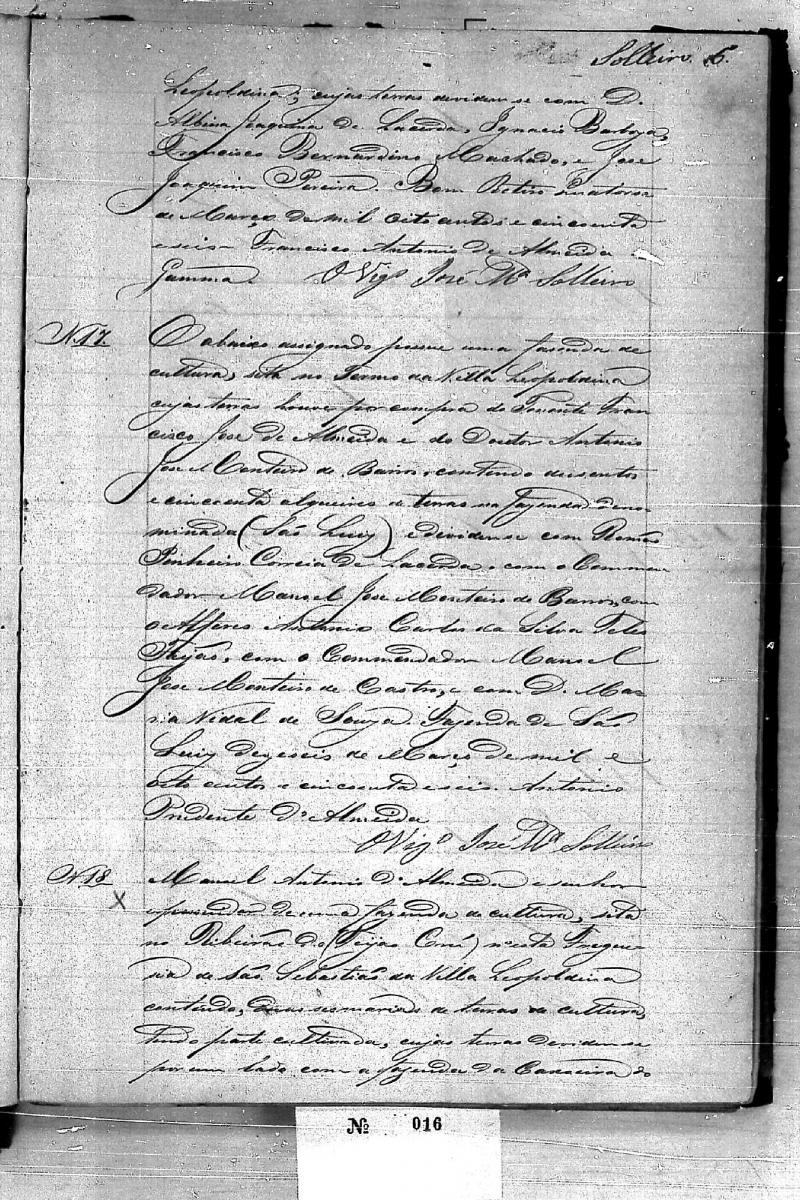 Solleiro 6.
Leopoldina, cujas terras devidem se com D.
Albina Joaquina de Lacerda, Ignacio Barboza,
Francisco Bernardino Machado, e Jose
Joaquim Pereira. Bom Retiro quatorze
de Março de mil oito centos e cincoenta
e seis - Francisco Antonio de Almeida
Gamma. O Vigº José Mª Solleiro
N.17. O abaixo assignado possue uma fasenda de
cultura, sita no Termo da Villa Leopoldina
cujas terras houve por compra do Tenente Fran
cisco Jose de Almeida e do Doutor Antonio
Jose Monteiro de Barros, contendo dusentos
e cincoenta alqueires de terras na fazenda deno
minada (São Luiz) e dividem se com Romão
Pinheiro Correia de Lacerda, com o Commen
dador Manoel Jose Monteiro de Barros, com
o Alferes Antonio Carlos da Silva Teles
com o Commendador Manoel
Jose Monteiro de Castro, e com D. Ma
ria Vidal de Souza. Fazenda de São
Luiz dezeseis de Março de mil e
oito centos e cincoenta e seis. Antonio
Prudente d'Almeida
O Vigº José Mª Solleiro
N.18. Manoel Antonio d'Almeida e senhor
e possuidor de uma fazenda de cultura, sita
no Ribeirão do (Feijão Crú) nesta Fregue
sia de São Sebastião da Villa Leopoldina
contendo, duas sesmarias de terras de cultura,
tendo parte cultivada, cujas terras devidem se
por um lado com a fazenda da do
Nº 016